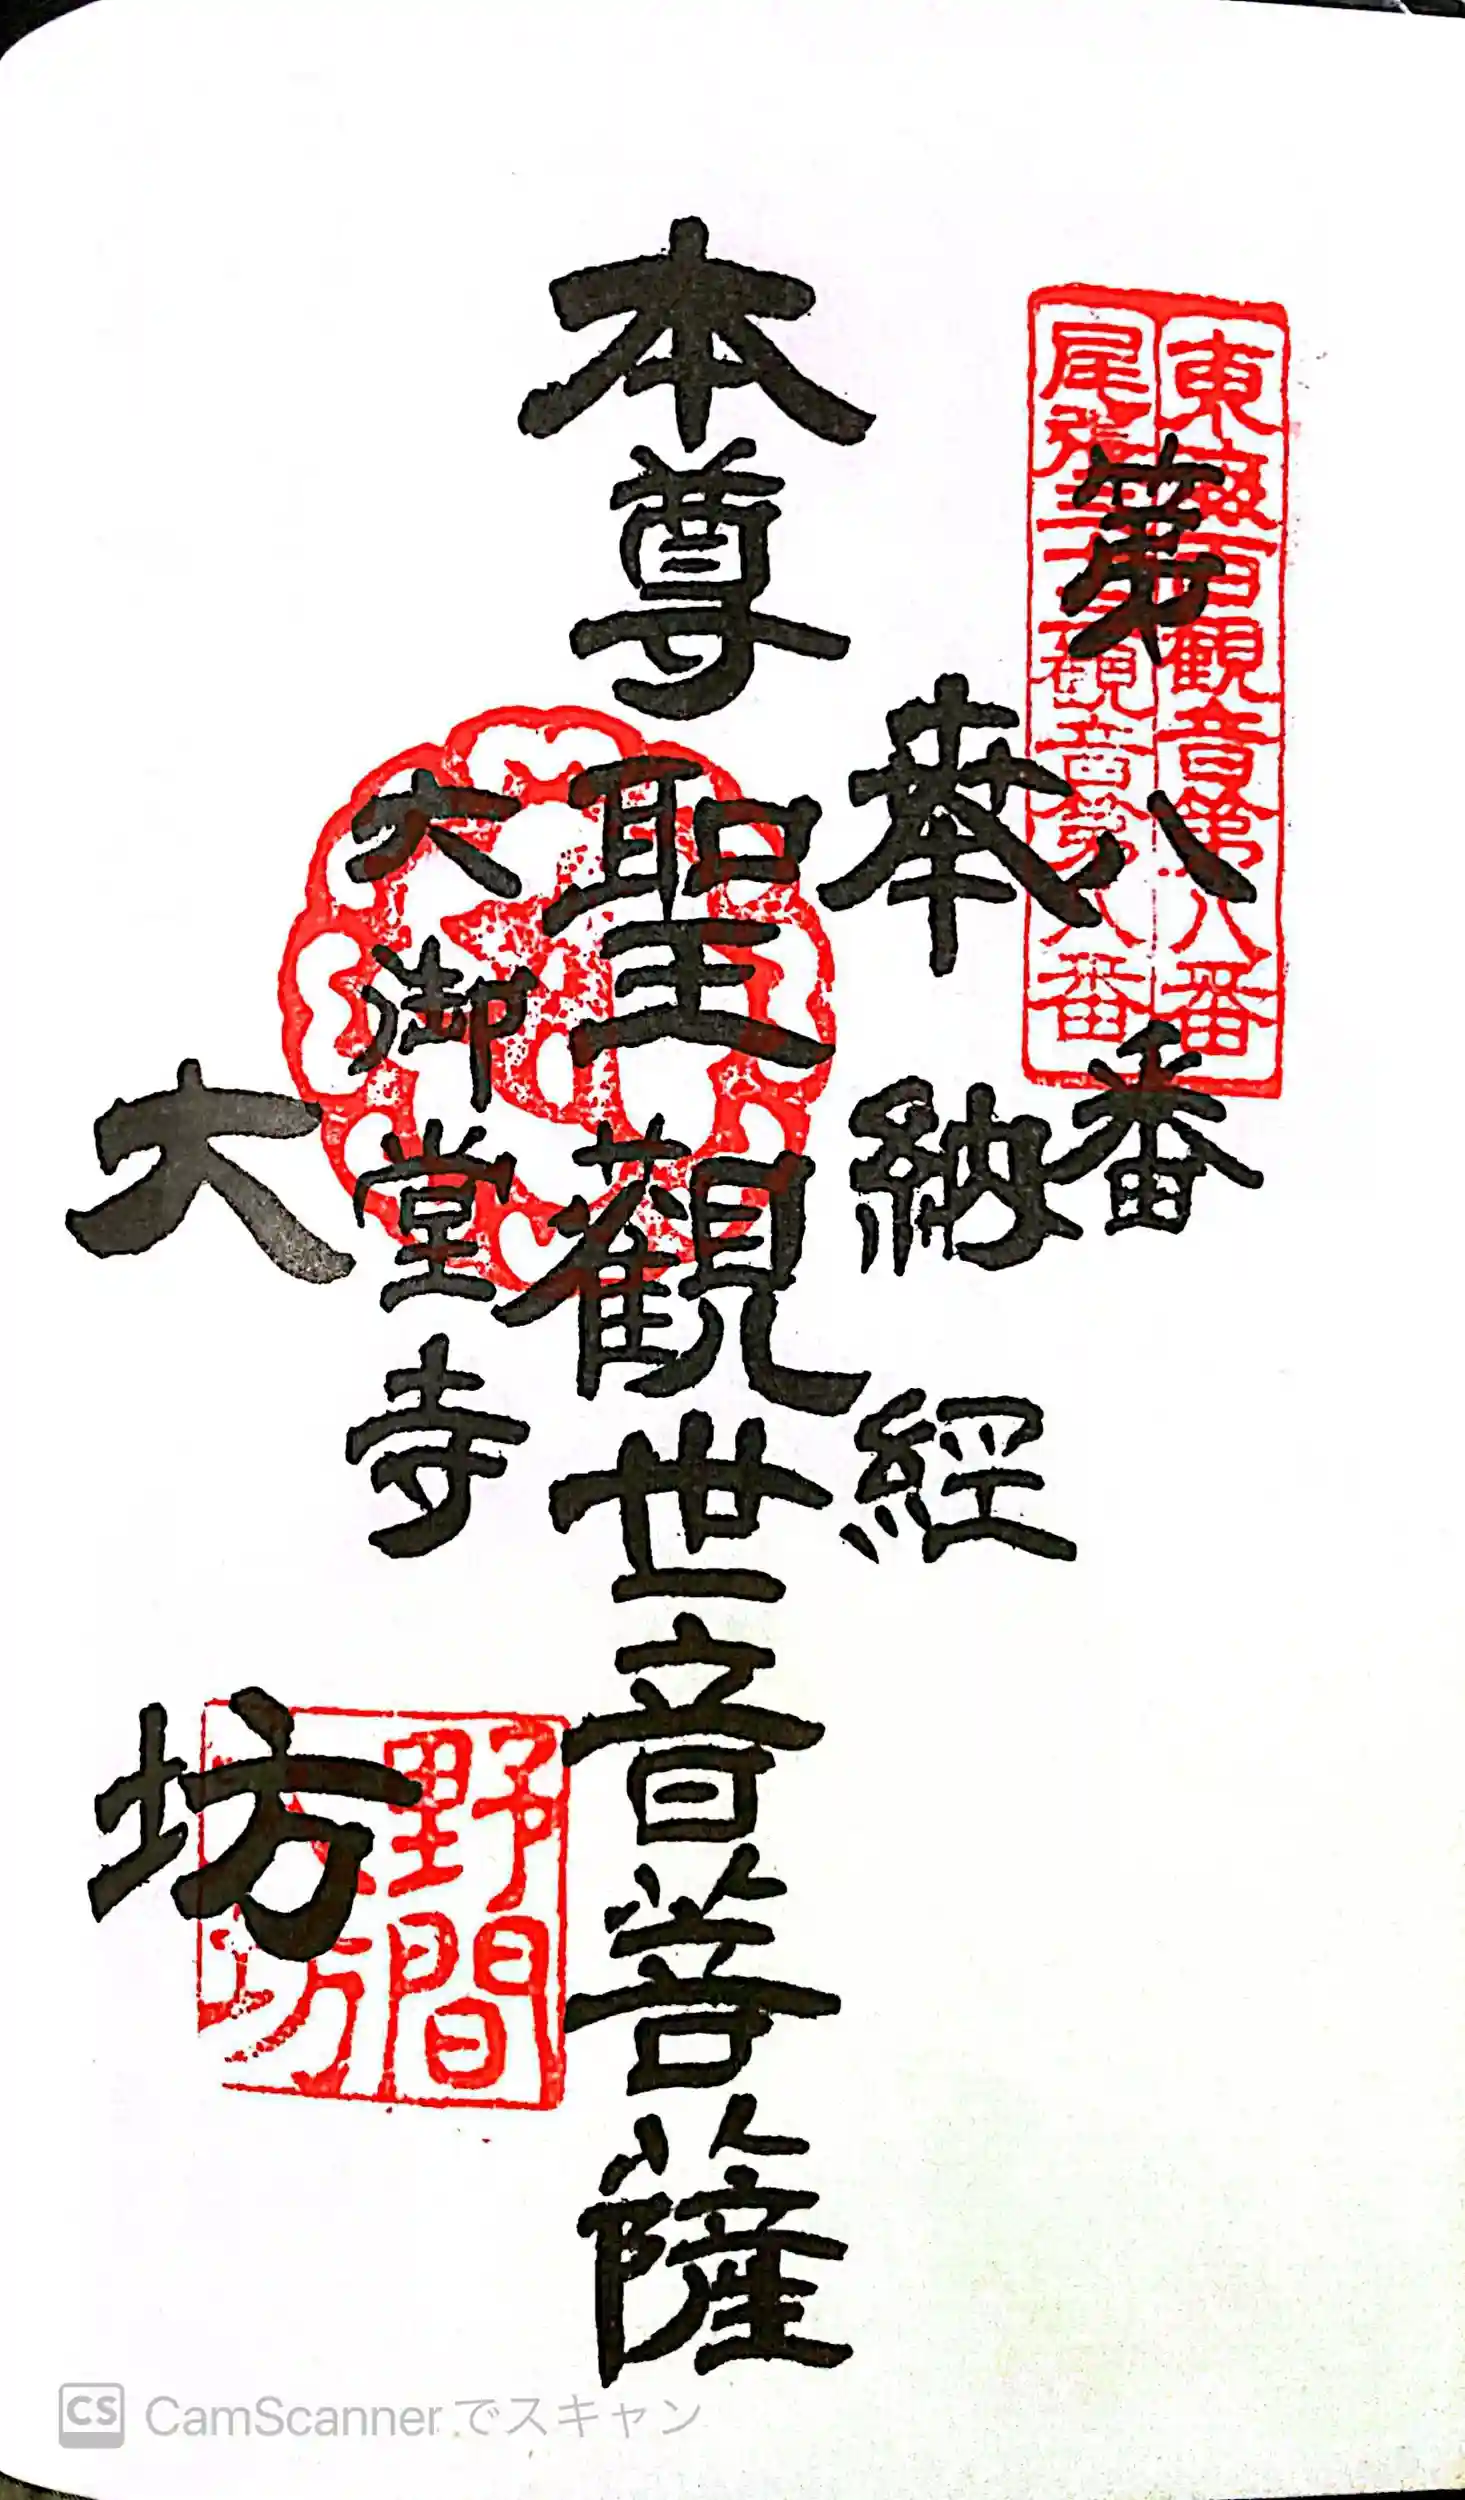 東海百観音第八番
尾張三十三観音第八番
第八番
奉納経
本尊聖観世音菩薩
大御堂寺
野間
大坊
大坊
CS CamScanner でスキャン